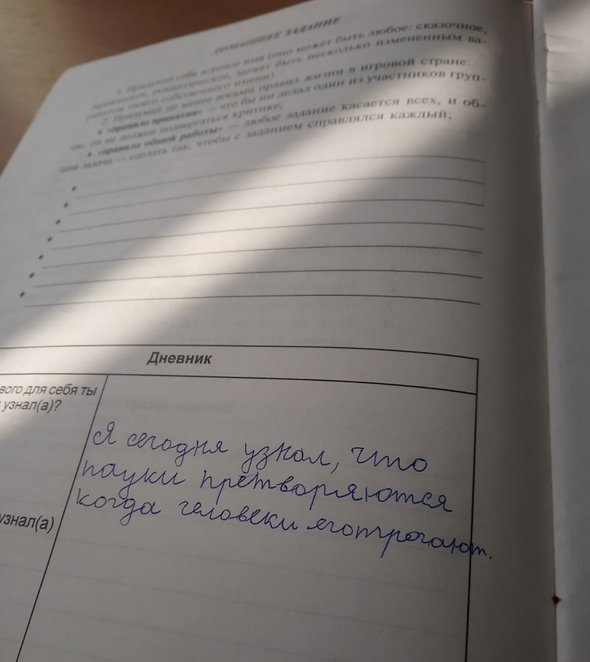 ДОМАШНЕЕ ЗАДАНИЕ
1. Придумай себе игровое имя (оно может быть любое: сказочное,
героическое, романтическое, может быть несколько измененным ва-
риантом твоего собственного имени).
2. Придумай не менее восьми правил жизни в игровой стране:
• «правило принятия» — что бы ни делал один из участников груп-
пы, он не должен подвергаться критике;
• «правило общей работы» — любое задание касается всех, и об-
щая задача — сделать так, чтобы с заданием справлялся каждый;
•
•
•
•
•
•
Дневник
вого для себя ты
узнал(а)?
Я сегодня узнал, что
пауки претворяются
когда человеки еготрогают.
узнал(а)